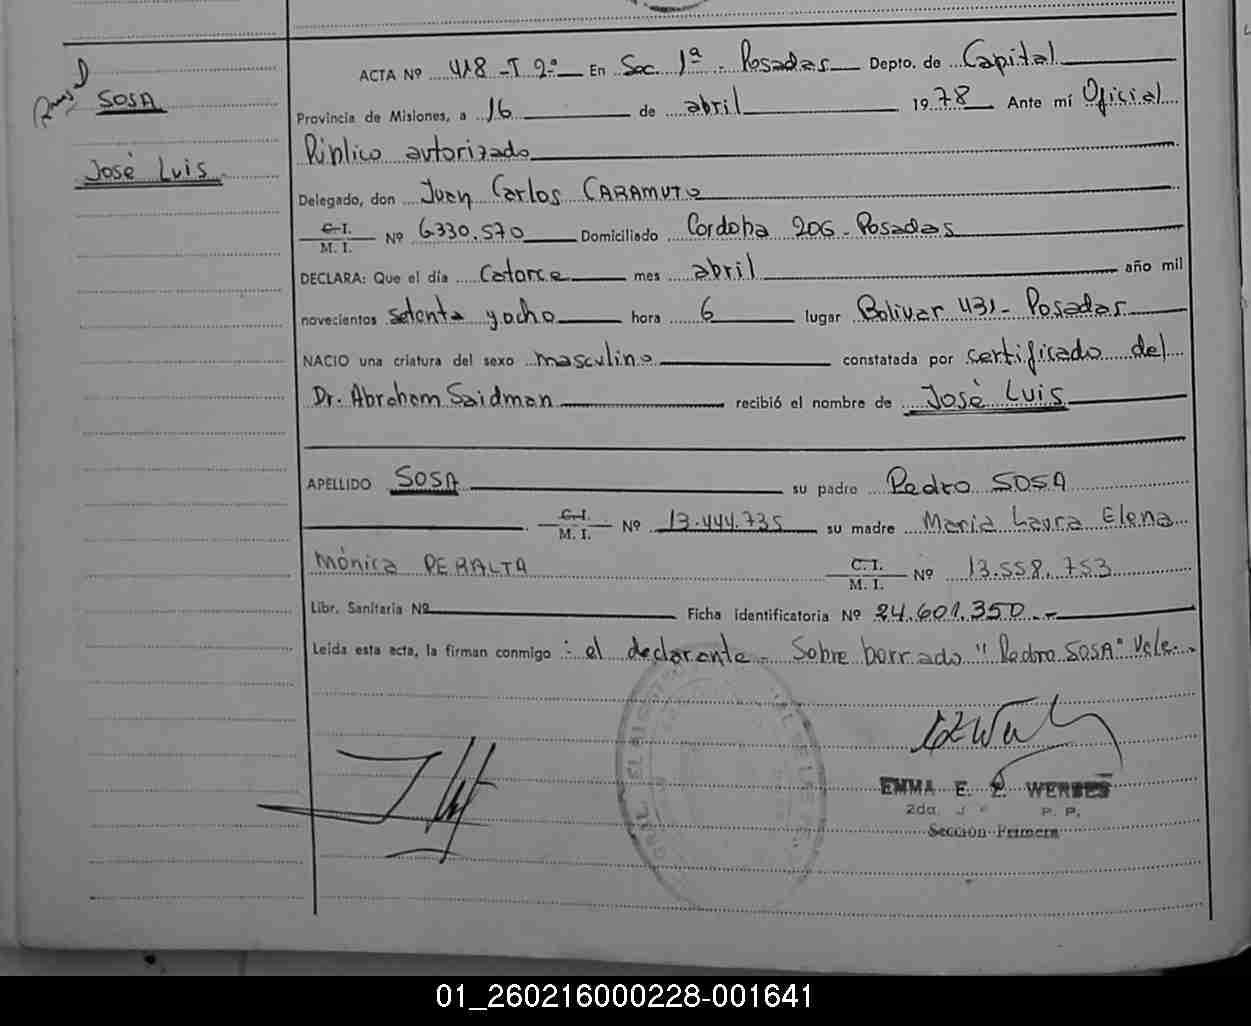 SOSA
José Luis
ACTA Nº 418 - T 2º En Sec. 1ª - Posadas Depto. de Capital
Provincia de Misiones, a 16 de abril 1978 Ante mí Oficial
Público autorizado
Delegado, don Juan Carlos CARAMUTO
C.I. M. I. Nº 6.330.570 Domiciliado Cordoba 206 - Posadas
DECLARA: Que el día catorce mes abril año mil
novecientos setenta y ocho hora 6 lugar Bolivar 431 - Posadas
NACIO una criatura del sexo masculino constatada por certificado del
Dr. Abraham Saidman recibió el nombre de José Luis
APELLIDO SOSA su padre Pedro SOSA
C.I. M. I. Nº 13.444.735 su madre Maria Laura Elena
Mónica PERALTA C. I. M. I. Nº 13.558.753
Libr. Sanitaria Nº Ficha identificatoria Nº 24.601.350.-
Leída esta acta, la firman conmigo : el declarante - Sobre borrado "Pedro SOSA" Vale.-
EMMA E. Z. WERBES
2da. J P. P.
Sección Primera
01_260216000228-001641